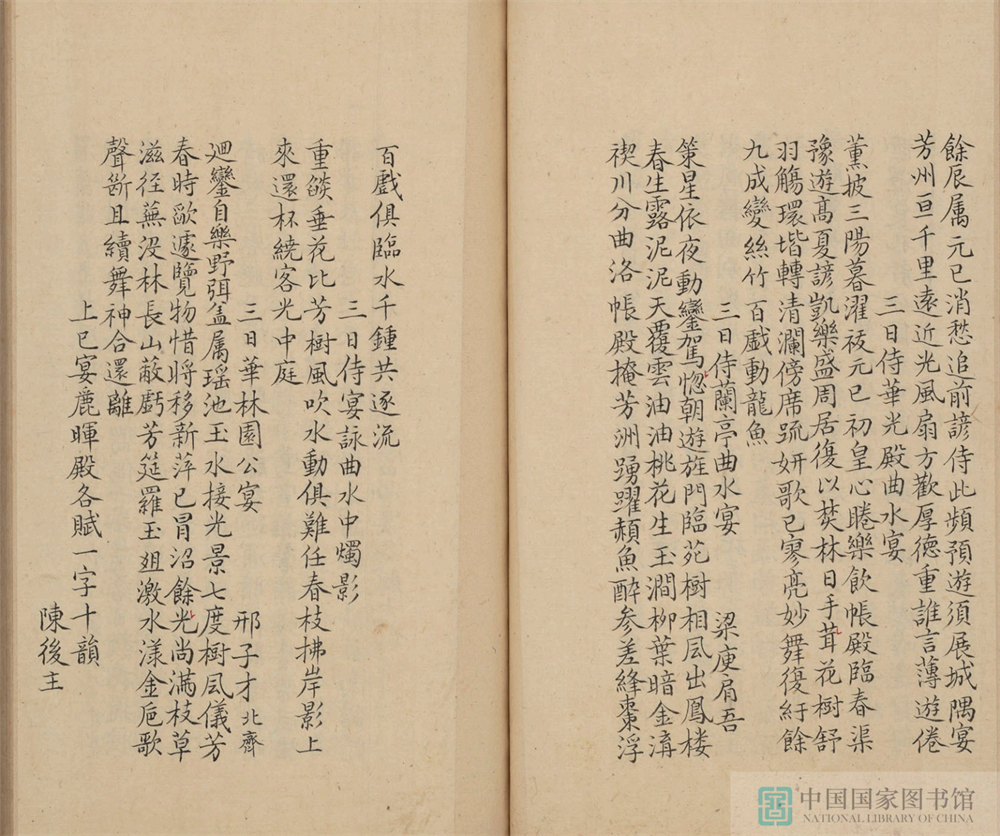 餘辰属元巳消愁追前諺侍此頻預遊須展城隅宴
芳州亘千里遠近光風扇方歡厚德重誰言薄遊倦
三日侍華光殿曲水宴
薰祓三陽暮濯祓元巳初皇心睠樂飲帳殿臨春渠
豫遊高夏諺凱樂盛周居復以焚林日手茸花樹舒
羽觴環堦轉清瀾傍席䟽妍歌已寥亮妙舞復紆餘
九成變絲竹百戲動龍魚
三日侍蘭亭曲水宴 梁庾肩吾
策星依夜動鑾駕惚朝遊旌門臨苑樹相風出鳳楼
春生露泥泥天覆雲油油桃花生玉澗柳葉暗金溝
禊川分曲洛帳殿掩芳洲踴躍頳魚醉参差絳棗浮
百戲俱臨水千鍾共逐流
三日侍宴詠曲水中燭影
重燄垂花比芳樹風吹水動俱難任春枝拂岸影上
來還杯繞客光中度
三日華林園公宴 邢子才北齊
廻鑾自樂野弭盖属瑶池玉水接光景七度樹風儀芳
春時歇遽覽物惜將移新萍已冒沼餘光尚滿枝草
滋徑蕪没林長山蔽虧芳筵羅玉俎激水漾金巵歌
聲斷且續舞神合還離
上巳宴鹿暉殿各賦一字十韻
陳後主
中国国家图书馆
NATIONAL LIBRARY OF CHINA